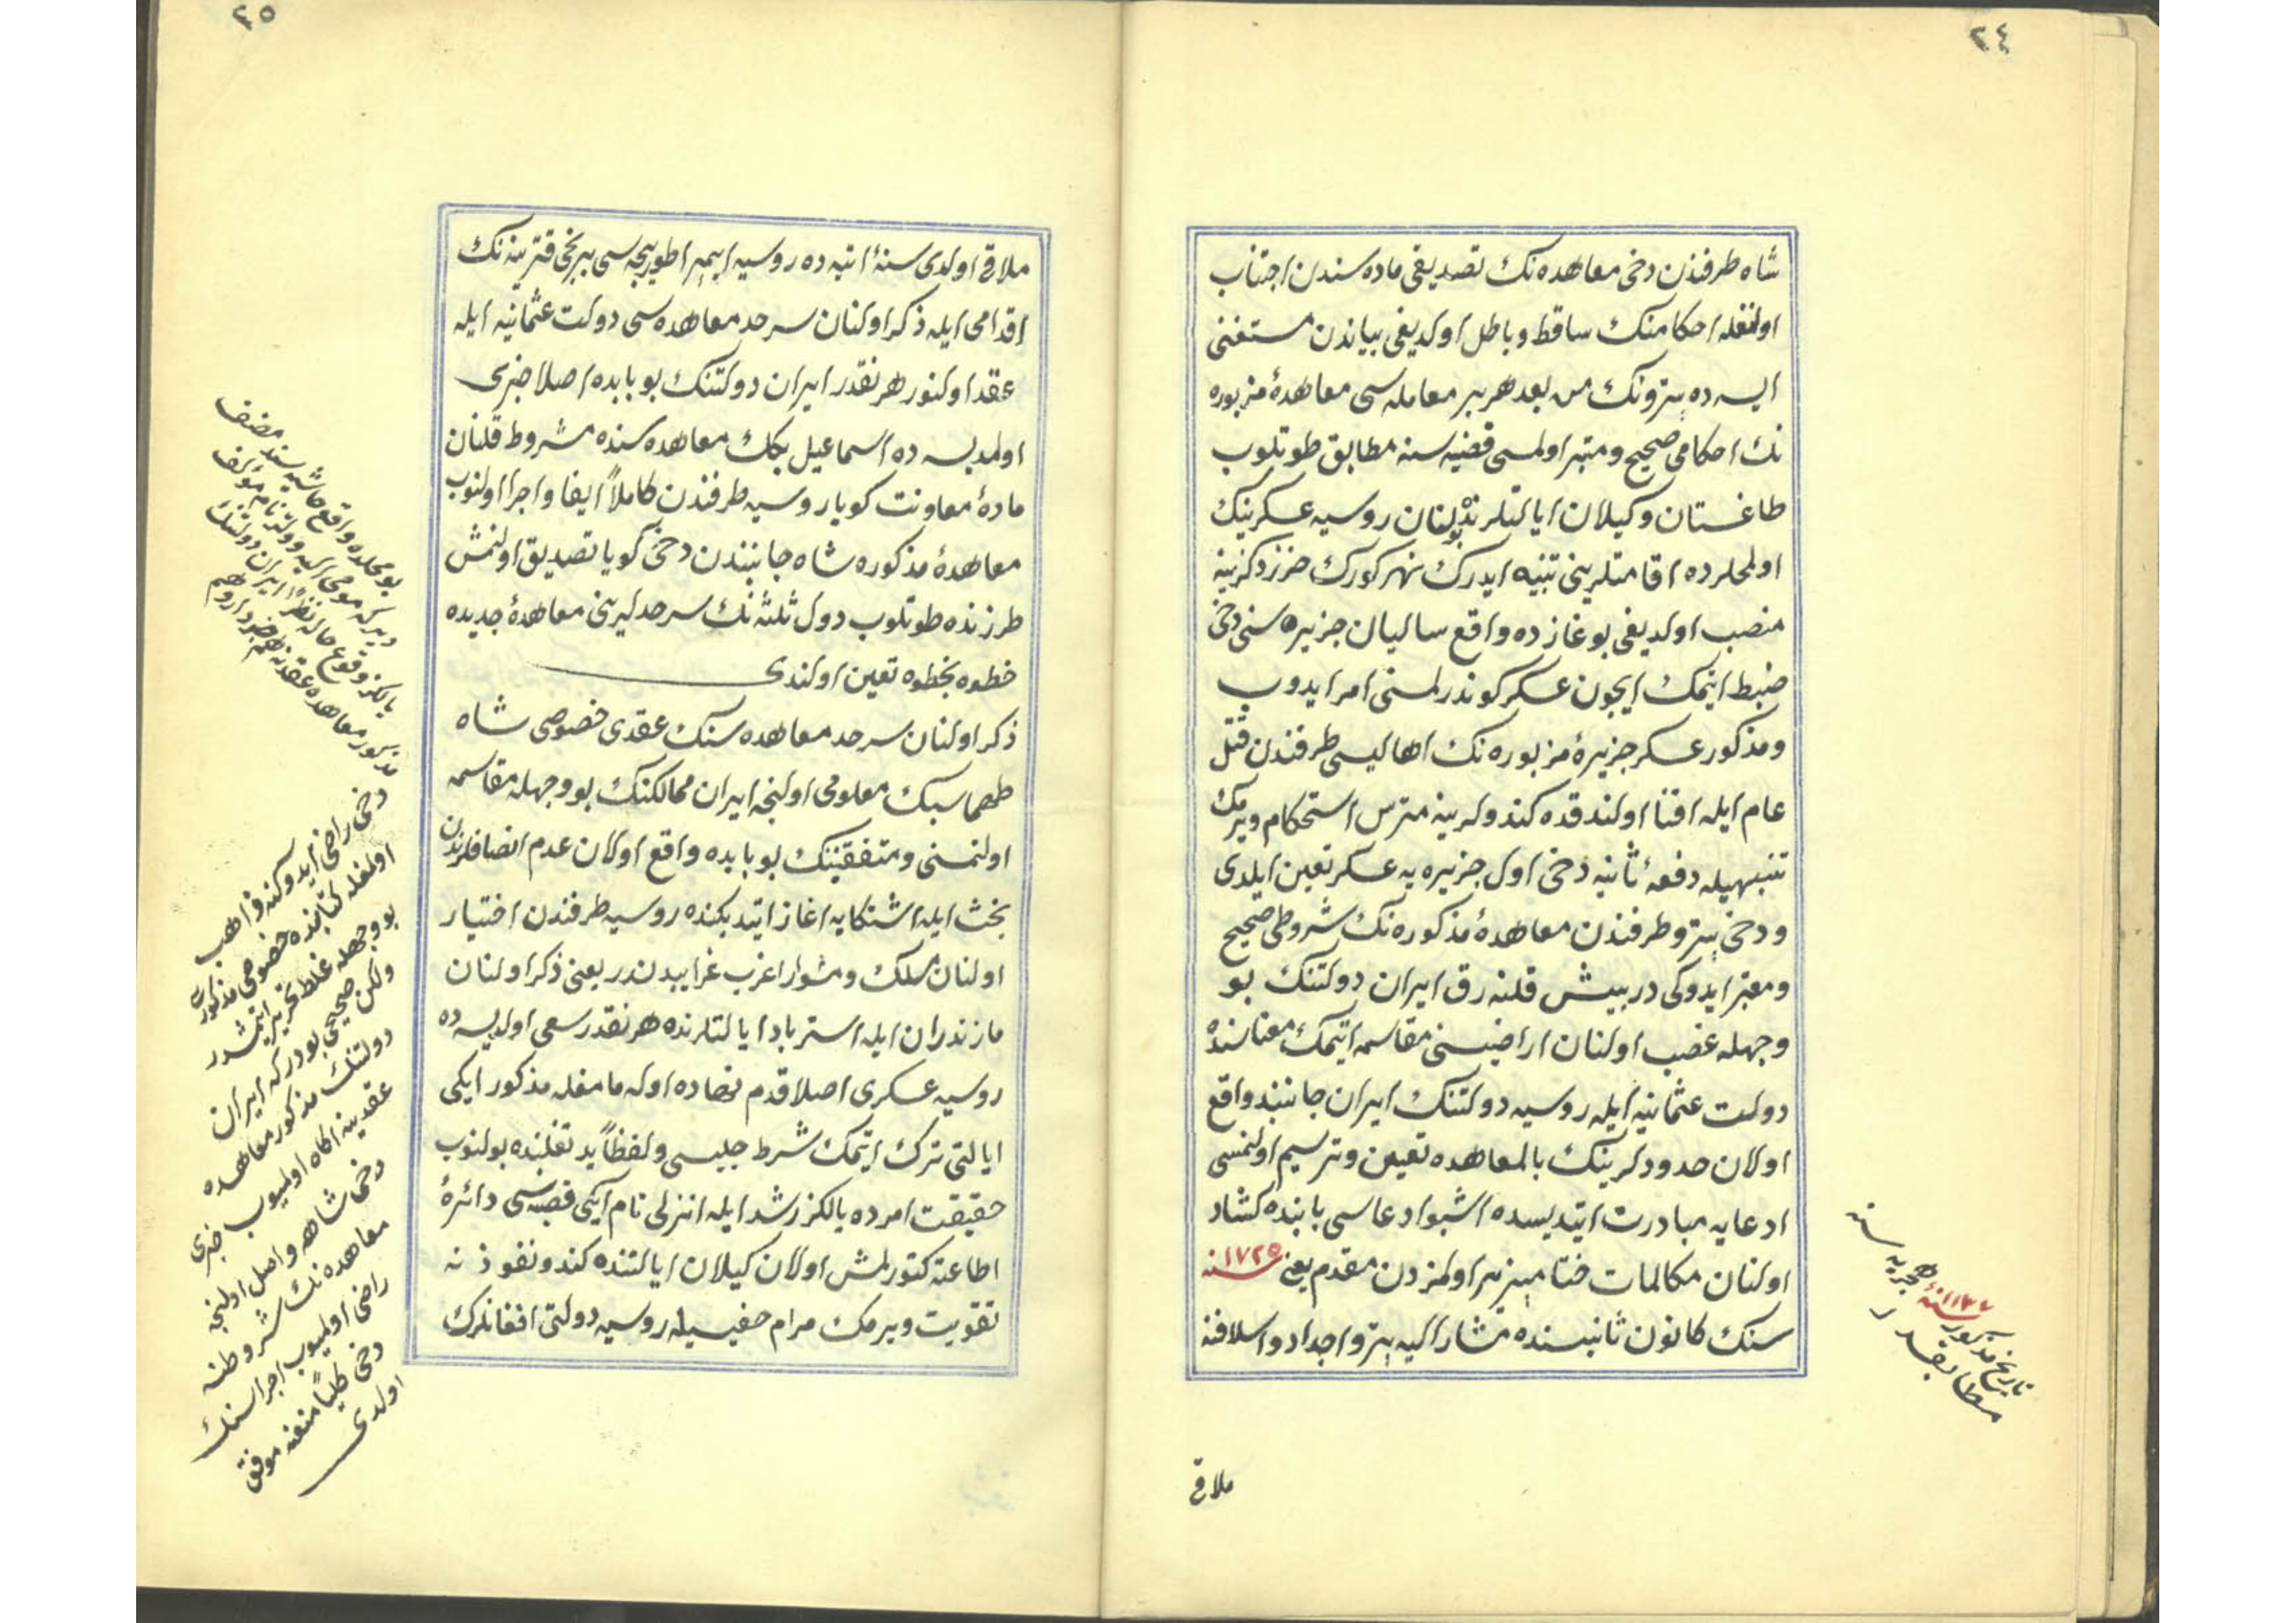 ٢٤
شاه طرفندن دخی معاهده نك تصدیقی ماده سندن اجتناب
اولنغله احكامنك ساقط وباطل اولدیغی بیاندن مستغنی
ایسه ده پترونك من بعد هر بر معامله سی معاهدۀ مزبوره
نك احكامی صحیح ومعتبر اولمسی قضیه سنه مطابق طوتلوب
طاغستان وكیلان ایالتلرنده بولنان روسیه عسكرینك
اولمحلرده اقامتلرینی تنبیه ایدرك نهر كورك خزر دكزینه
منصب اولدیغی بوغازده واقع سالیان جزیره سنی دخی
ضبط ایتمك ایچون عسكر كوندرلمسنی امر ایدوب
ومذكور عسكر جزیرۀ مزبوره نك اهالیسی طرفندن قتل
عام ایله افنا اولندقده كندولرینه مترس استحكام ویرمك
تنبیهیله دفعۀ ثانیه دخی اول جزیره یه عسكر تعیین ایلدی
ودخی پترو طرفندن معاهدۀ مذكوره نك شروطی صحیح
ومعتبر ایدوكی درپیش قلنه رق ایران دولتنك بو
وجهله غصب اولنان اراضیسنی مقاسمه ایتمك معناسنده
دولت عثمانیه ایله روسیه دولتنك ایران جانبنده واقع
اولان حدودلرینك بالمعاهده تعیین وترسیم اولنمسی
ادعایه مبادرت ایتدیسه ده اشبو ادعاسی بابنده كشاد
اولنان مكالمات ختامپذیر اولمزدن مقدم یعنی ١٧٢٥ سنه
سنك كانون ثانیسنده مشار الیه پترو اجداد واسلافنه
تاریخ مذكور ١١٣٧ سنۀ هجریه سنه
مطابقدر
ملاقی
٢٥
ملاقی اولدی سنۀ اتیه ده روسیه ایمپراطوریچه سی برنجی قترینه نك
اقدامی ایله ذكر اولنان سرحد معاهده سی دولت عثمانیه ایله
عقد اولنور هر نقدر ایران دولتنك بو بابده اصلا خبری
اولمدیسه ده اسماعیل بكك معاهده سنده مشروط قلنان
مادۀ معاونت كویا روسیه طرفندن كاملاً ایفا واجرا اولنوب
معاهدۀ مذكوره شاه جانبندن دخی كویا تصدیق اولنمش
طرزنده طوتلوب دول ثلثه نك سرحدلرینی معاهدۀ جدیده
خطوه بخطوه تعین اولندی
ذكر اولنان سرحد معاهده سنك عقدی خصوصی شاه
طهماسبك معلومی اولنجه ایران ممالكنك بو وجهله مقاسمه
اولنمسنی ومتفقینك بو بابده واقع اولان عدم انصافلرندن
بحث ایله اشتكایه اغاز ایتدیكنده روسیه طرفندن اختیار
اولنان مسلك ومشوار اغرب غرایبدندر یعنی ذكر اولنان
مازندران ایله استراباد ایالتلرنده هر نقدر سعی اولدیسه ده
روسیه عسكری اصلا قدم نهاده اوله مامغله مذكور ایكی
ایالتی ترك ایتمك شرط جلیسی ولفظاً ید تغلبنده بولنوب
حقیقت امرده یالكز رشد ایله انزلی نام ایكی قصبه سی دائرۀ
اطاعته كتورلمش اولان كیلان ایالتنده كندو نفوذنه
تقویت ویرمك مرام خفیسیله روسیه دولتی افغانلرك
بو محلده واقع حاشیه سنده مصنف
دیر كه مومی الیه وولتر نام مؤلف
یالكز وقوع حاله نظراً ایران دولتنك
مذكور معاهده عقدنه هم خبردار وهم
دخی راضی ایدوكنه ذاهب
اولمغله كتابنده خصوص مذكوری
بو وجهله غلط تحریر ایتمشدر
ولكن صحیحی بودر كه ایران
دولتنك مذكور معاهده
عقدینه اكاه اولمیوب خبری
دخی شاهه واصل اولنجه
معاهده نك شروطنه
راضی اولمیوب اجراسنك
دخی كلیاً منعنه موفق
اولدی